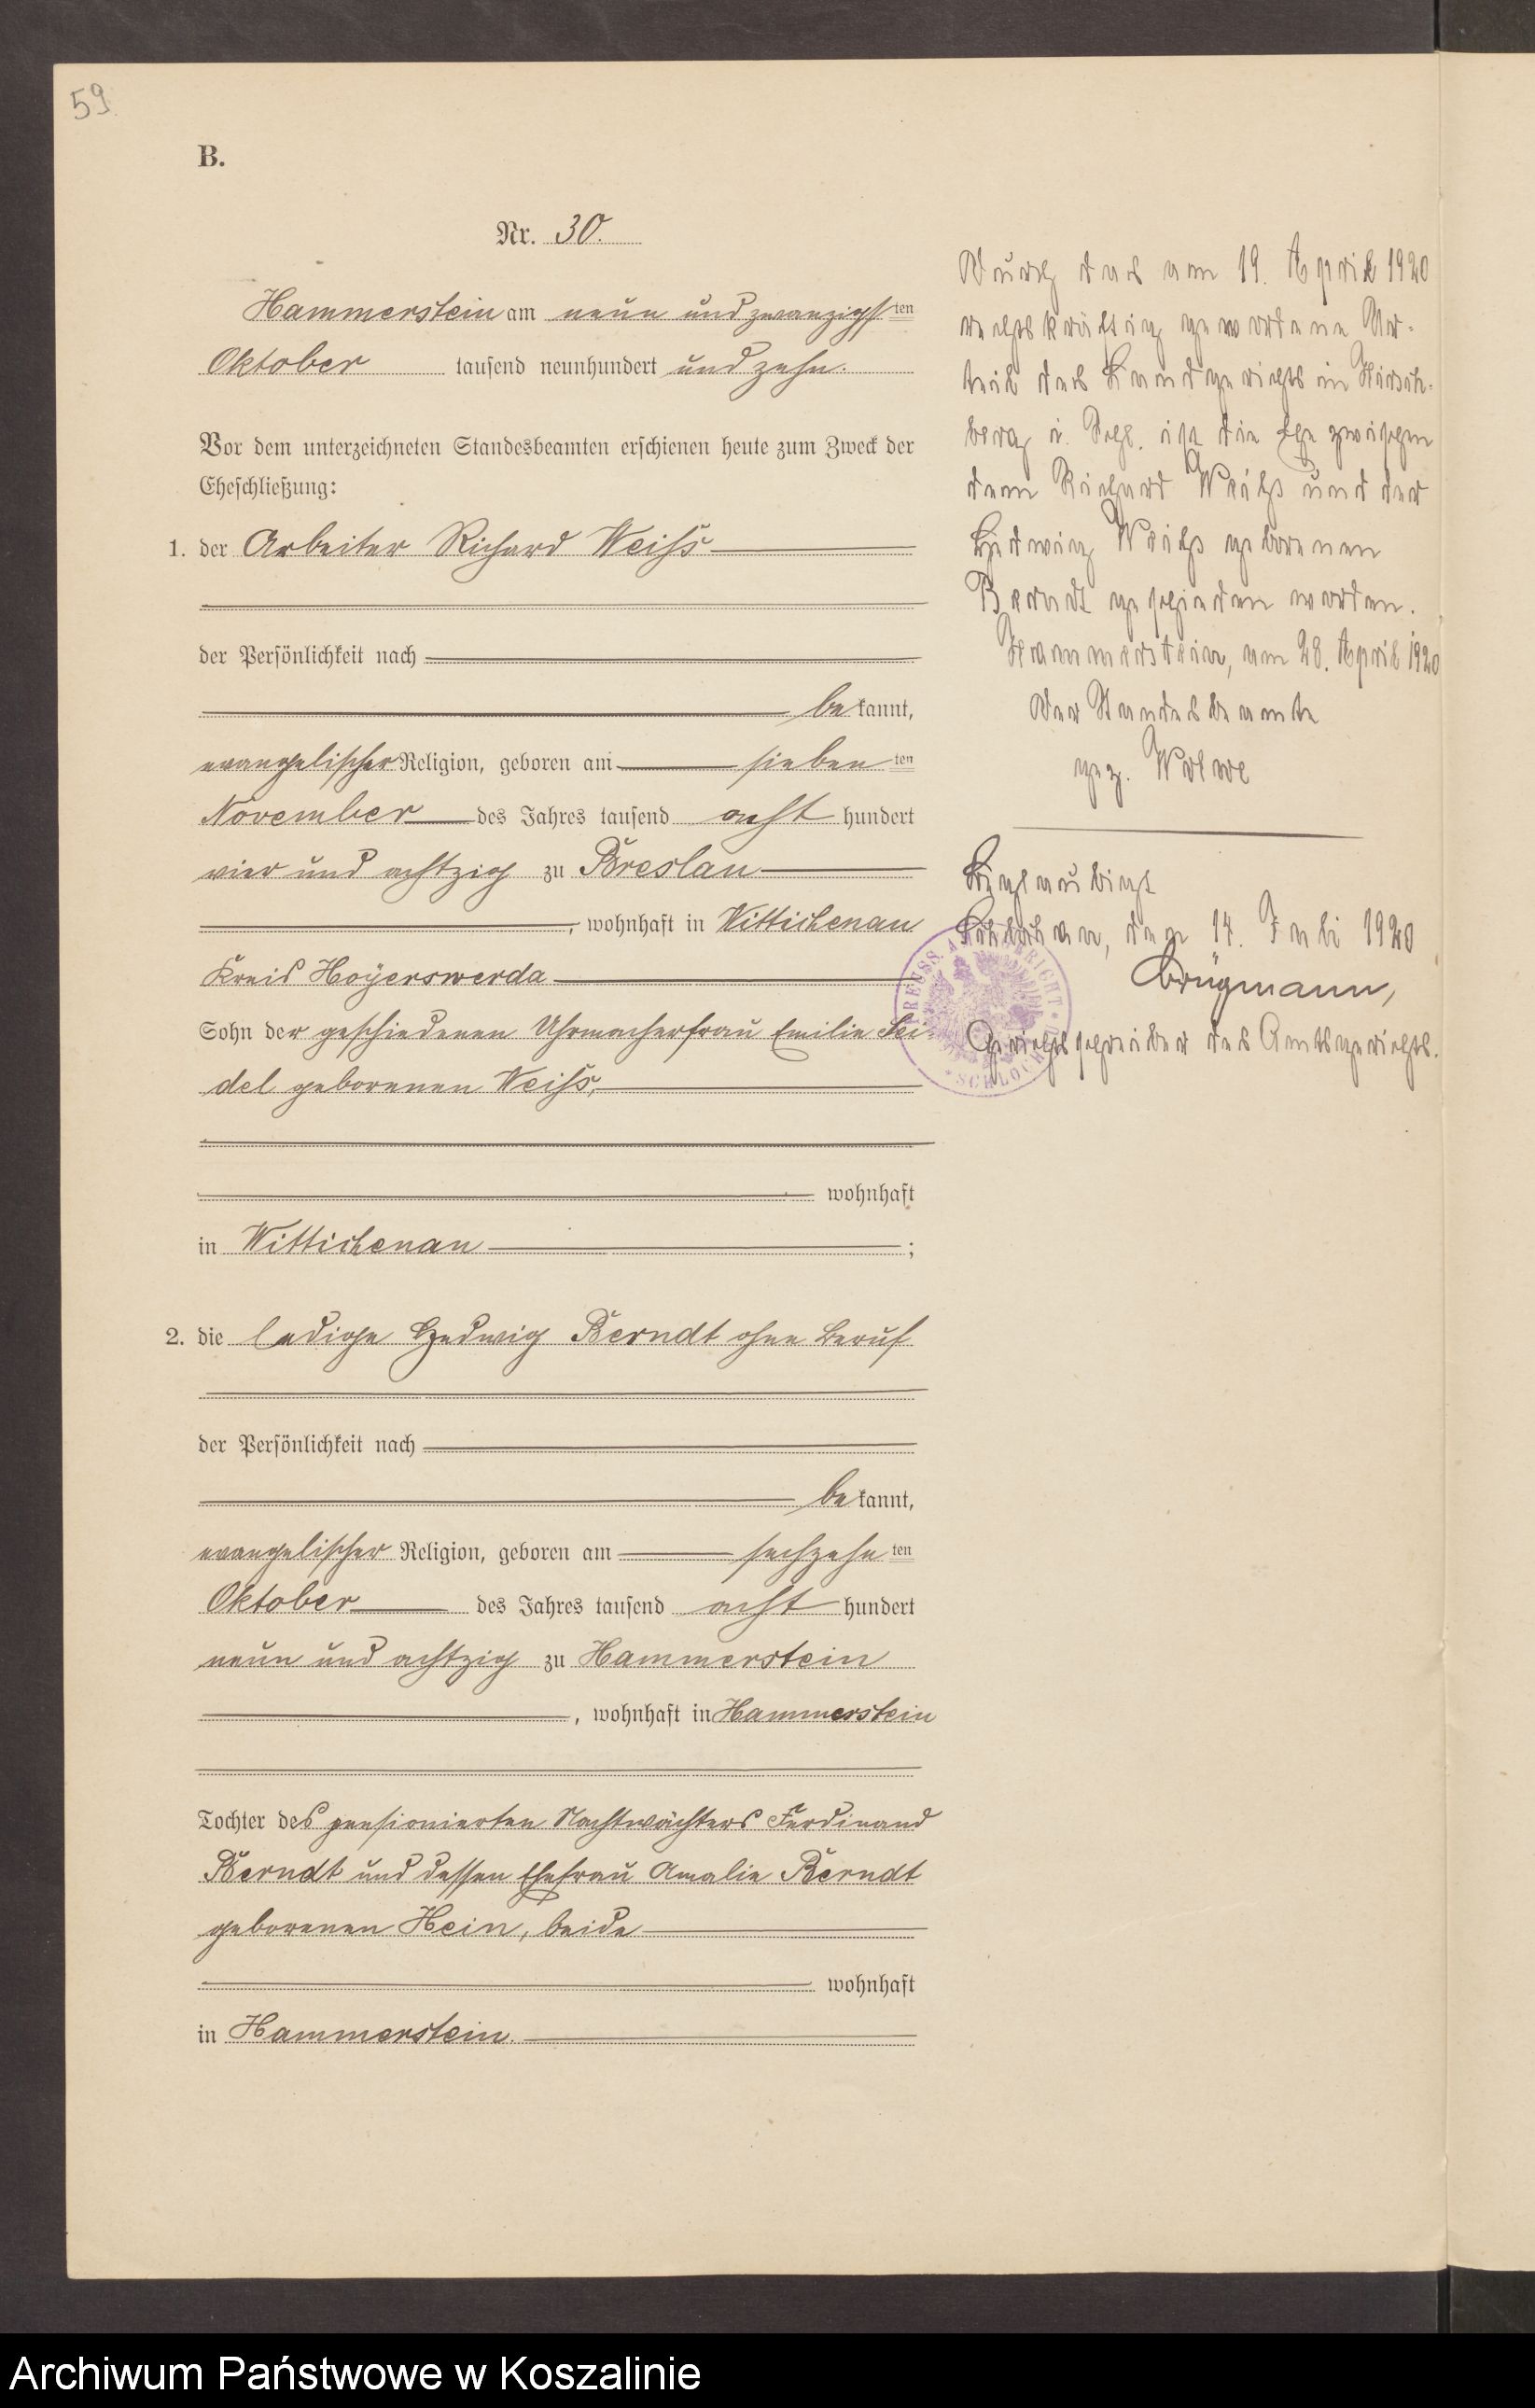 59.
B.
Nr. 30.
Hammerstein am neun und zwanzigsten
Oktober tausend neunhundert und zehn.
Vor dem unterzeichneten Standesbeamten erschienen heute zum Zweck der
Eheschließung:
1. der Arbeiter Richard Weiß
der Persönlichkeit nach
bekannt,
evangelischer Religion, geboren am siebenten
November des Jahres tausend acht hundert
vier und achtzig zu Breslau
, wohnhaft in Wittichenau
Kreis Hoyerswerda
Sohn der geschiedenen Uhrmacherfrau Emilie Sei-
del geborenen Weiß,
wohnhaft
in Wittichenau ;
2. die ledige Hedwig Berndt ohne Beruf
der Persönlichkeit nach
bekannt,
evangelischer Religion, geboren am sechzehnten
Oktober des Jahres tausend acht hundert
neun und achtzig zu Hammerstein
, wohnhaft in Hammerstein
Tochter des pensionierten Nachtwächters Ferdinand
Berndt und dessen Ehefrau Amalie Berndt
geborenen Hein, beide
wohnhaft
in Hammerstein.
Durch das am 19. April 1920
rechtskräftig gewordene Ur-
teil des Landgerichts in Hirsch-
berg i. Schl. ist die Ehe zwischen
dem Richard Weiß und der
Hedwig Weiß geborenen
Berndt geschieden worden.
Hammerstein, am 28. April 1920
Der Standesbeamte
gez.
Beglaubigt
Schlochau, den 14. Juli 1920
Brügmann,
Gerichtsschreiber des Amtsgerichts.
PREUSS. AMTSGERICHT
SCHLOCHAU
Archiwum Państwowe w Koszalinie